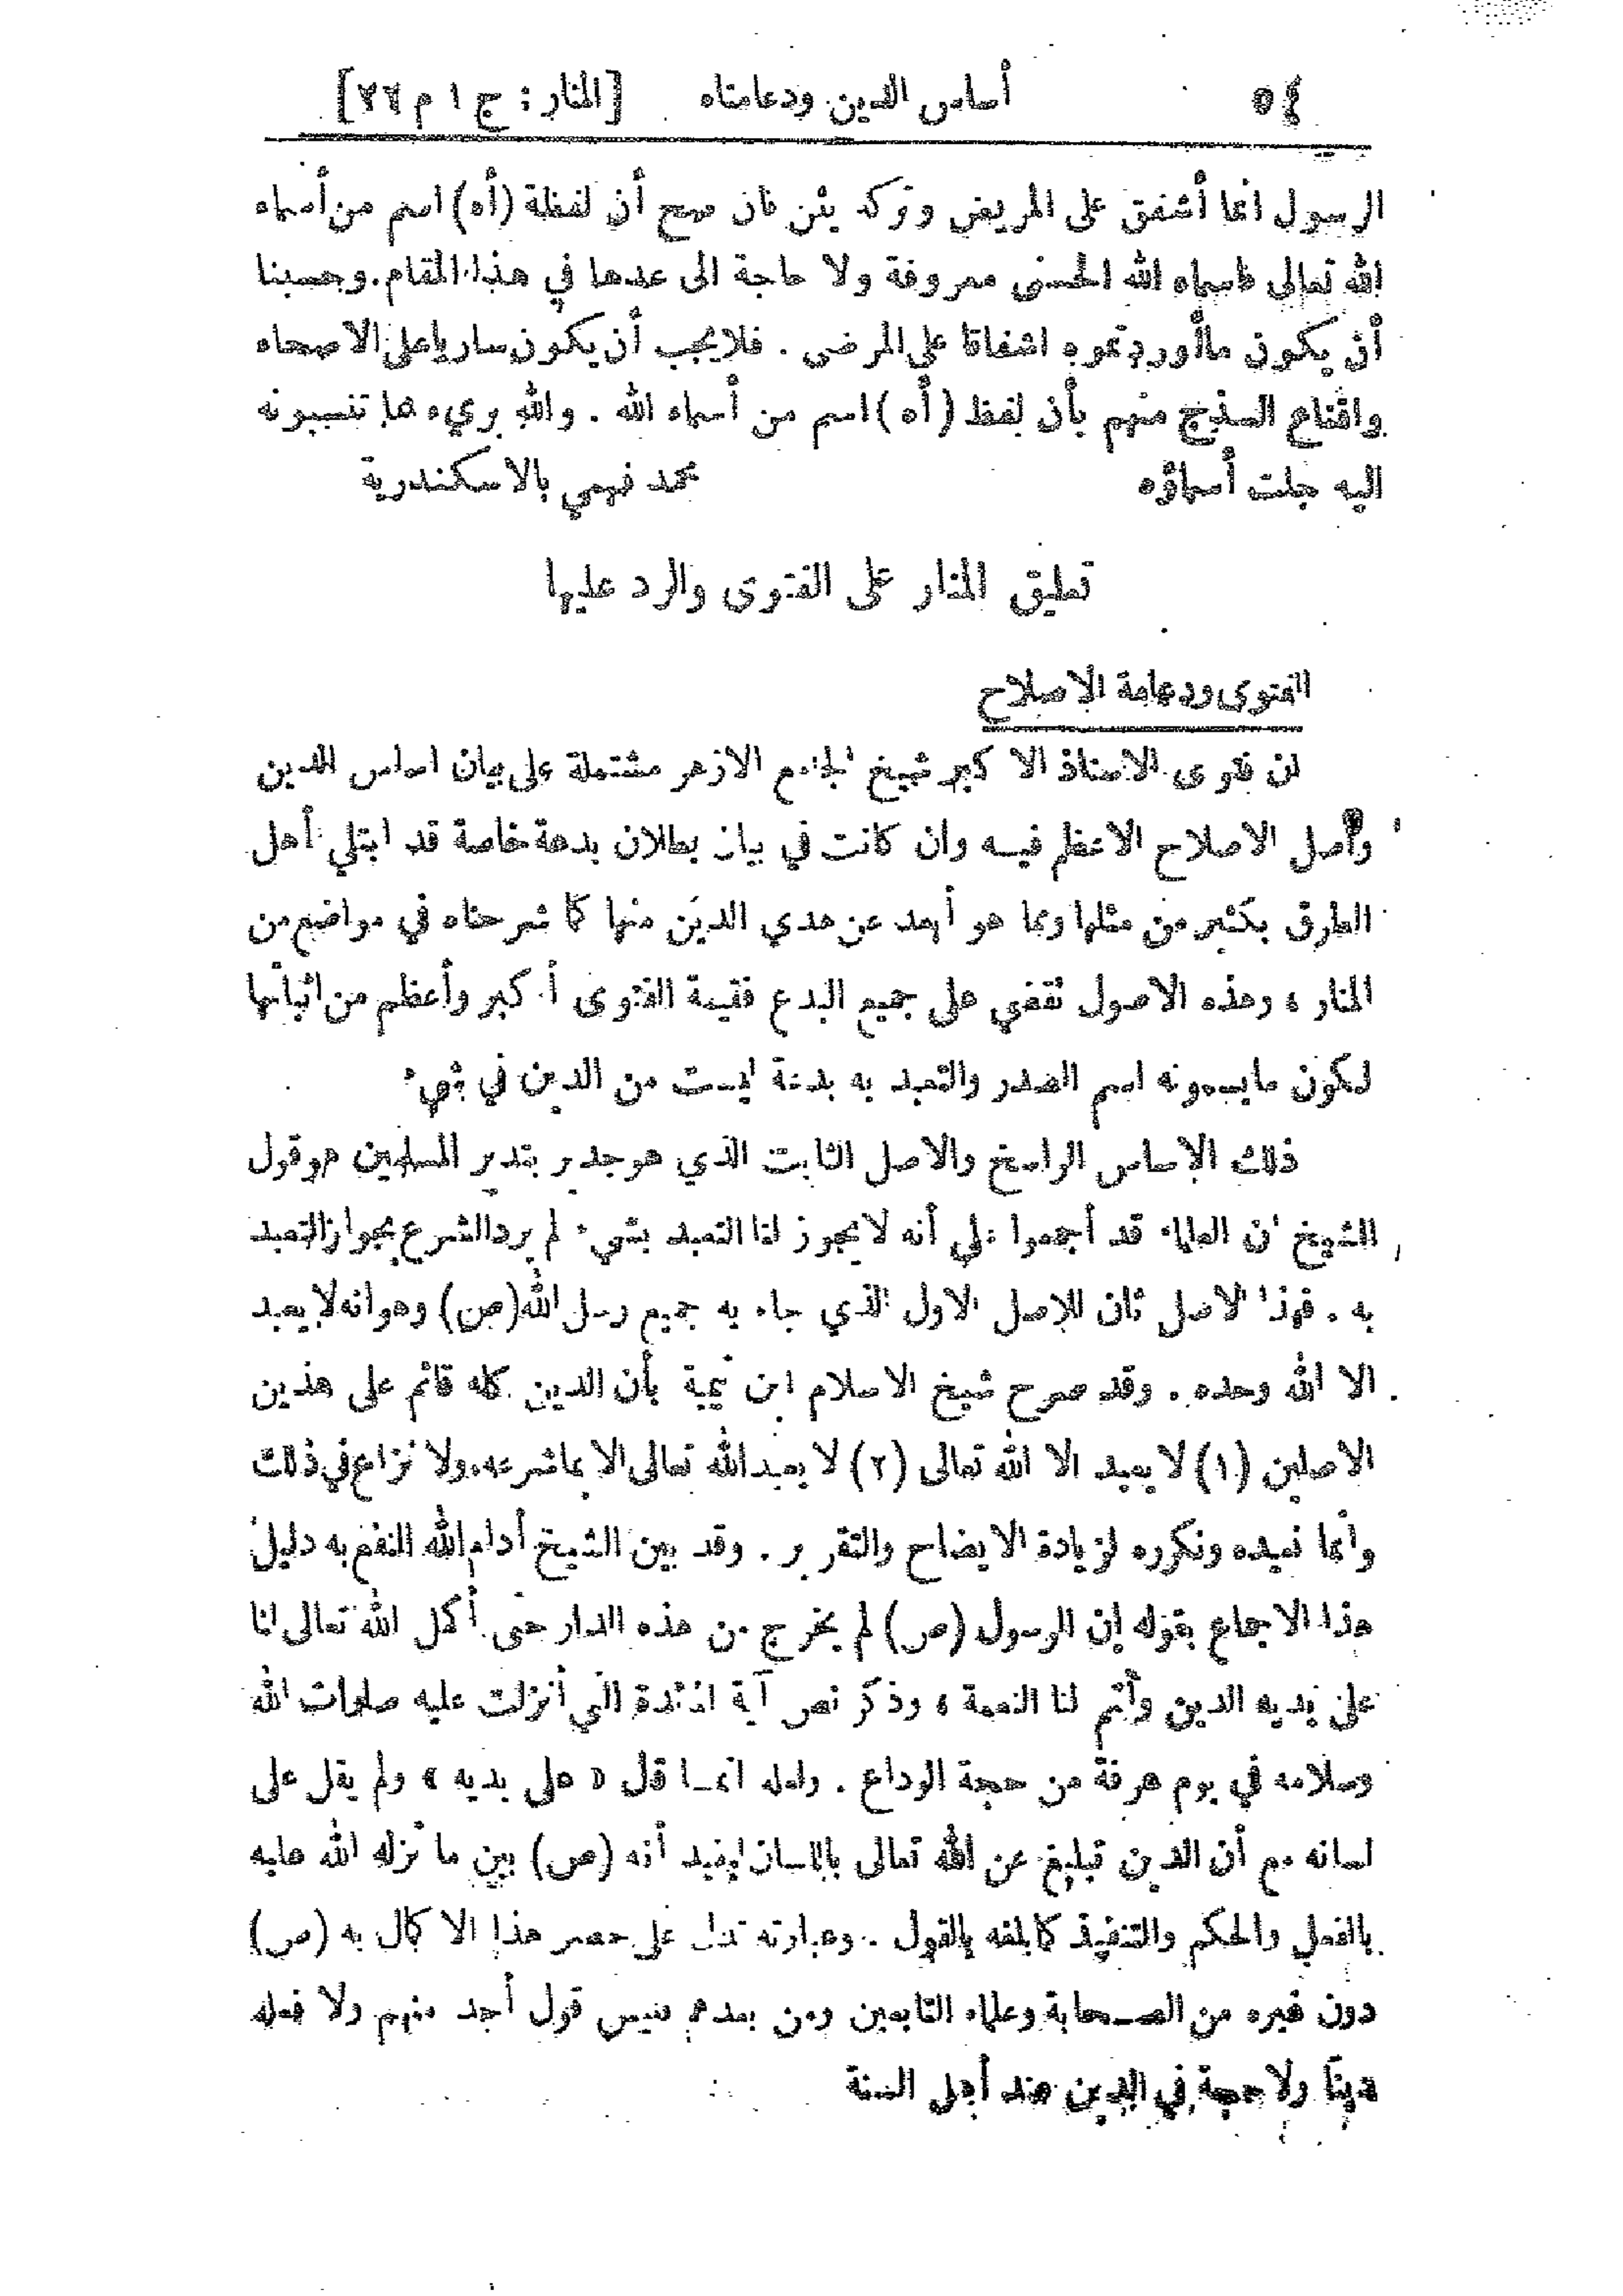 ٥٤ أساس الدين ودعامتاه [المنار : ج ١ م ٢٦]
الرسول انما أشفق على المريض وتركه يئن فان صح أن لفظة (أه) اسم من أسماء
الله تعالى فاسماء الله الحسنى معروفة ولا حاجة الى عدها في هذا المقام . وحسبنا
أن يكون ما أوردتموه اشفاقا على المرضى . فلا يجب أن يكون ساريا على الاصحاء
واقناع السذج منهم بأن لفظ (أه) اسم من أسماء الله . والله بريء مما تنسبونه
اليه جلت أسماؤه محمد فهمي بالاسكندرية
تعليق المنار على الفتوى والرد عليها
الفتوى ودعامة الاصلاح
ان فتوى الاستاذ الاكبر شيخ الجامع الازهر مشتملة على بيان اساس الدين
وأصل الاصلاح الاعظم فيه وان كانت في بيان بطلان بدعة خاصة قد ابتلي أهل
الطرق بكثير من مثلها وبما هو أبعد عن هدي الدين منها كما شرحناه في مواضع من
المنار ، وهذه الاصول تقضي على جميع البدع فقيمة الفتوى أكبر وأعظم من اثباتها
لكون ما يسمونه اسم الصدر والتعبد به بدعة ليست من الدين في شيء
ذلك الاساس الراسخ والاصل الثابت الذي هو جدير بتدبر المسلمين هو قول
الشيخ ان العلماء قد أجمعوا على أنه لا يجوز لنا التعبد بشيء لم يرد الشرع بجواز التعبد
به . فهذا الاصل ثان للاصل الاول الذي جاء به جميع رسل الله (ص) وهو انه لا يعبد
الا الله وحده . وقد صرح شيخ الاسلام ابن تيمية بأن الدين كله قائم على هذين
الاصلين (١) لا يعبد الا الله تعالى (٢) لا يعبد الله تعالى الا بما شرعه . ولا نزاع في ذلك
وانما نعيده ونكرره لزيادة الايضاح والتقرير . وقد بين الشيخ أدام الله النفع به دليل
هذا الاجماع بقوله إن الرسول (ص) لم يخرج من هذه الدار حتى أكمل الله تعالى لنا
على يديه الدين وأتم لنا النعمة ، وذكر نص آية المائدة التي أنزلت عليه صلوات الله
وسلامه في يوم عرفة من حجة الوداع . ولعله انما قال « على يديه » ولم يقل على
لسانه مع أن الدين تبليغ عن الله تعالى باللسان ليفيد أنه (ص) بين ما نزله الله عليه
بالفعل والحكم والتنفيذ كما بلغه بالقول . وعبارته تدل على حصر هذا الاكمال به (ص)
دون غيره من الصحابة وعلماء التابعين ومن بعدهم فليس قول أحد منهم ولا فعله
دينا ولا حجة في الدين عند أهل السنة